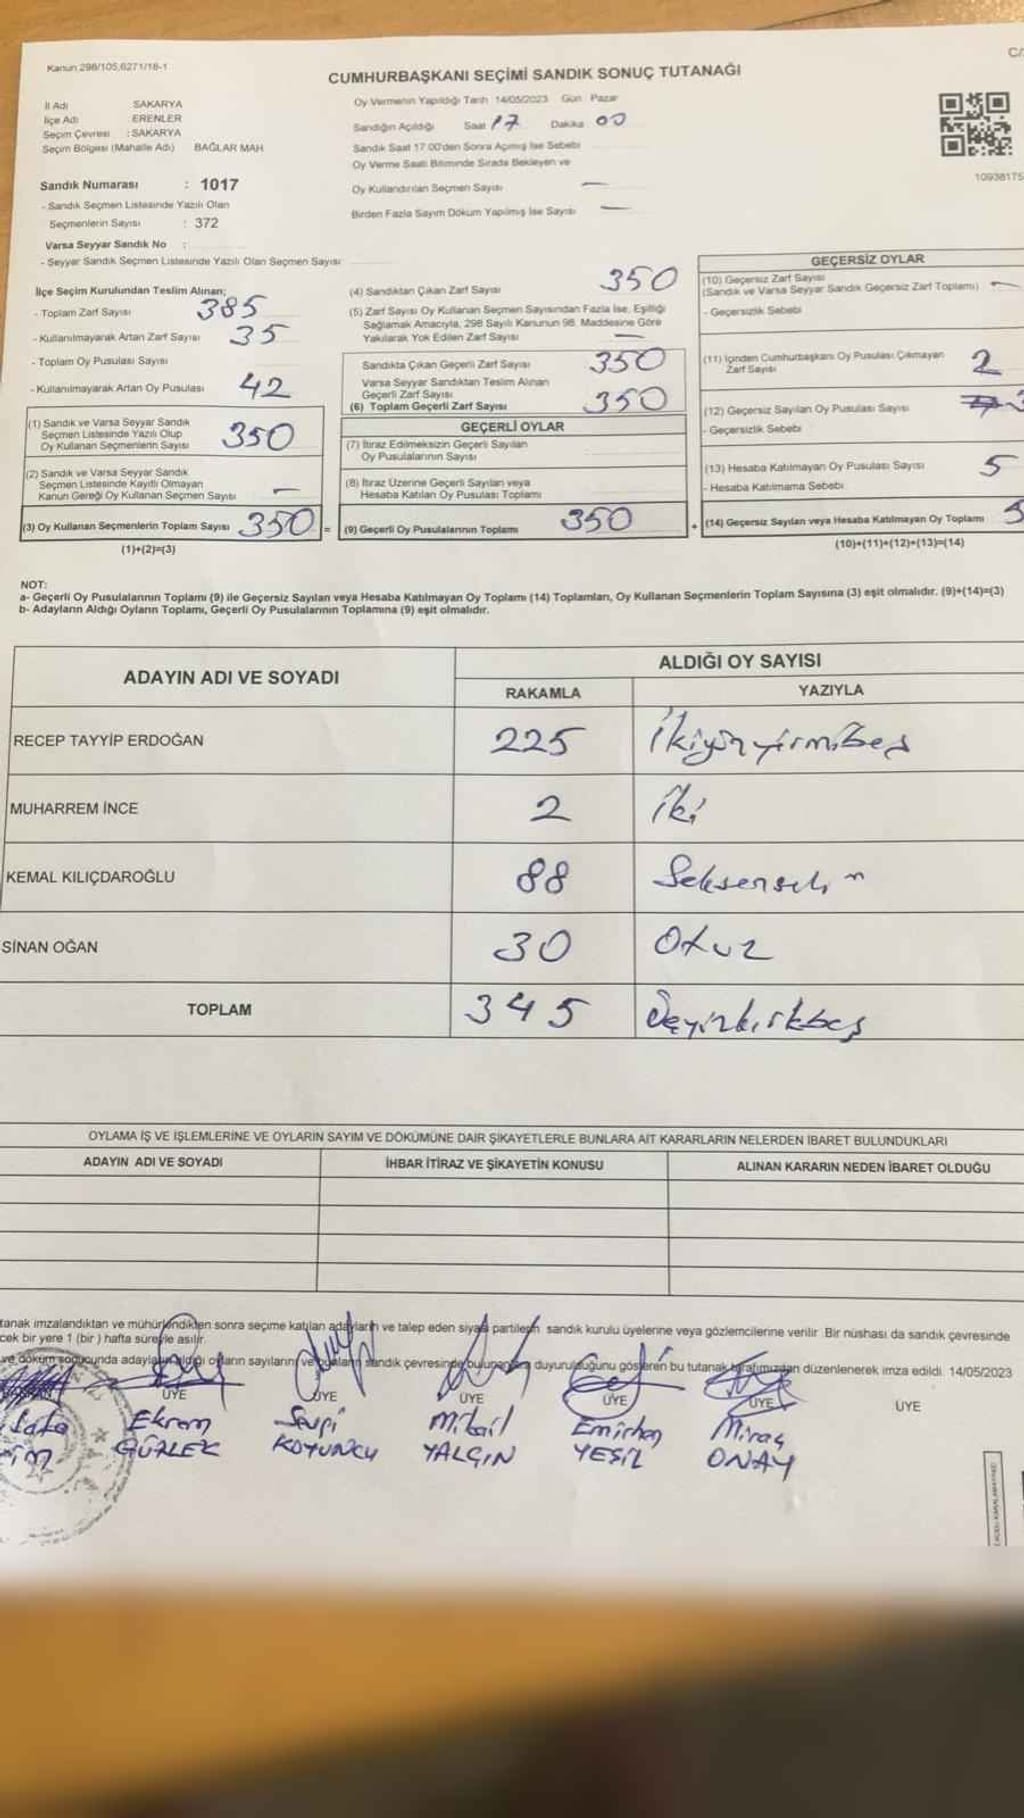 Kanun 298/105,6271/18-1
CUMHURBAŞKANI SEÇİMİ SANDIK SONUÇ TUTANAĞI
İl Adı SAKARYA
İlçe Adı ERENLER
Seçim Çevresi : SAKARYA
Seçim Bölgesi (Mahalle Adı) BAĞLAR MAH
Oy Vermenin Yapıldığı Tarih 14/05/2023 Gün Pazar
Sandığın Açıldığı Saat 17 Dakika 00
Sandık Saat 17:00'den Sonra Açımış İse Sebebi
Oy Verme Saati Bitiminde Sırada Bekleyen ve
Oy Kullandırılan Seçmen Sayısı —
Birden Fazla Sayım Döküm Yapılmış İse Sayısı —
10938175
Sandık Numarası : 1017
- Sandık Seçmen Listesinde Yazılı Olan
Seçmenlerin Sayısı : 372
Varsa Seyyar Sandık No :
- Seyyar Sandık Seçmen Listesinde Yazılı Olan Seçmen Sayısı
İlçe Seçim Kurulundan Teslim Alınan;
- Toplam Zarf Sayısı 385
- Kullanılmayarak Artan Zarf Sayısı 35
- Toplam Oy Pusulası Sayısı
- Kullanılmayarak Artan Oy Pusulası 42
(1) Sandık ve Varsa Seyyar Sandık
Seçmen Listesinde Yazılı Olup
Oy Kullanan Seçmenlerin Sayısı 350
(2) Sandık ve Varsa Seyyar Sandık
Seçmen Listesinde Kayıtlı Olmayan
Kanun Gereği Oy Kullanan Seçmen Sayısı —
(3) Oy Kullanan Seçmenlerin Toplam Sayısı 350 =
(1)+(2)=(3)
(4) Sandıktan Çıkan Zarf Sayısı 350
(5) Zarf Sayısı Oy Kullanan Seçmen Sayısından Fazla İse, Eşitliği
Sağlamak Amacıyla, 298 Sayılı Kanunun 98. Maddesine Göre
Yakılarak Yok Edilen Zarf Sayısı —
Sandıkta Çıkan Geçerli Zarf Sayısı 350
Varsa Seyyar Sandıktan Teslim Alınan
Geçerli Zarf Sayısı
(6) Toplam Geçerli Zarf Sayısı 350
GEÇERLİ OYLAR
(7) İtiraz Edilmeksizin Geçerli Sayılan
Oy Pusulalarının Sayısı
(8) İtiraz Üzerine Geçerli Sayılan veya
Hesaba Katılan Oy Pusulası Toplamı
(9) Geçerli Oy Pusulalarının Toplamı 350 +
GEÇERSİZ OYLAR
(10) Geçersiz Zarf Sayısı
(Sandık ve Varsa Seyyar Sandık Geçersiz Zarf Toplamı) —
- Geçersizlik Sebebi
(11) İçinden Cumhurbaşkanı Oy Pusulası Çıkmayan
Zarf Sayısı 2
(12) Geçersiz Sayılan Oy Pusulası Sayısı 3
- Geçersizlik Sebebi
(13) Hesaba Katılmayan Oy Pusulası Sayısı 5
- Hesaba Katılmama Sebebi
(14) Geçersiz Sayılan veya Hesaba Katılmayan Oy Toplamı
(10)+(11)+(12)+(13)=(14)
NOT:
a- Geçerli Oy Pusulalarının Toplamı (9) ile Geçersiz Sayılan veya Hesaba Katılmayan Oy Toplamı (14) Toplamları, Oy Kullanan Seçmenlerin Toplam Sayısına (3) eşit olmalıdır. (9)+(14)=(3)
b- Adayların Aldığı Oyların Toplamı, Geçerli Oy Pusulalarının Toplamına (9) eşit olmalıdır.
ADAYIN ADI VE SOYADI ALDIĞI OY SAYISI
RAKAMLA YAZIYLA
RECEP TAYYİP ERDOĞAN 225 İkiyüzyirmibeş
MUHARREM İNCE 2 İki
KEMAL KILIÇDAROĞLU 88
SİNAN OĞAN 30 Otuz
TOPLAM 345 Üçyüzkırkbeş
OYLAMA İŞ VE İŞLEMLERİNE VE OYLARIN SAYIM VE DÖKÜMÜNE DAİR ŞİKAYETLERLE BUNLARA AİT KARARLARIN NELERDEN İBARET BULUNDUKLARI
ADAYIN ADI VE SOYADI İHBAR İTİRAZ VE ŞİKAYETİN KONUSU ALINAN KARARIN NEDEN İBARET OLDUĞU
tanak imzalandıktan ve mühürlendikten sonra seçime katılan adayların ve talep eden siyasi partilerin sandık kurulu üyelerine veya gözlemcilerine verilir. Bir nüshası da sandık çevresinde
cek bir yere 1 (bir ) hafta süreyle asılır.
ve döküm sonucunda adayların aldığı oyların sayılarını ve bunların sandık çevresinde bulunanlara duyurulduğunu gösteren bu tutanak tarafımızdan düzenlenerek imza edildi. 14/05/2023
ÜYE ÜYE ÜYE ÜYE ÜYE ÜYE
Ekrem Mikail Emirhan Miraç
GÜRLEK KOYUNCU YALÇIN YEŞİL ONAY